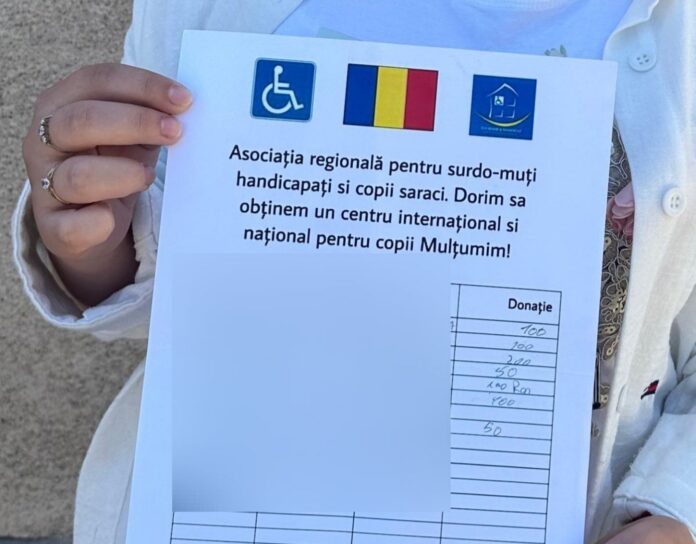 Asociația regională pentru surdo-muți
handicapați si copii saraci. Dorim sa
obținem un centru internațional si
național pentru copii Mulțumim!
Donație
100
100
200
50
100 Ron
100
50